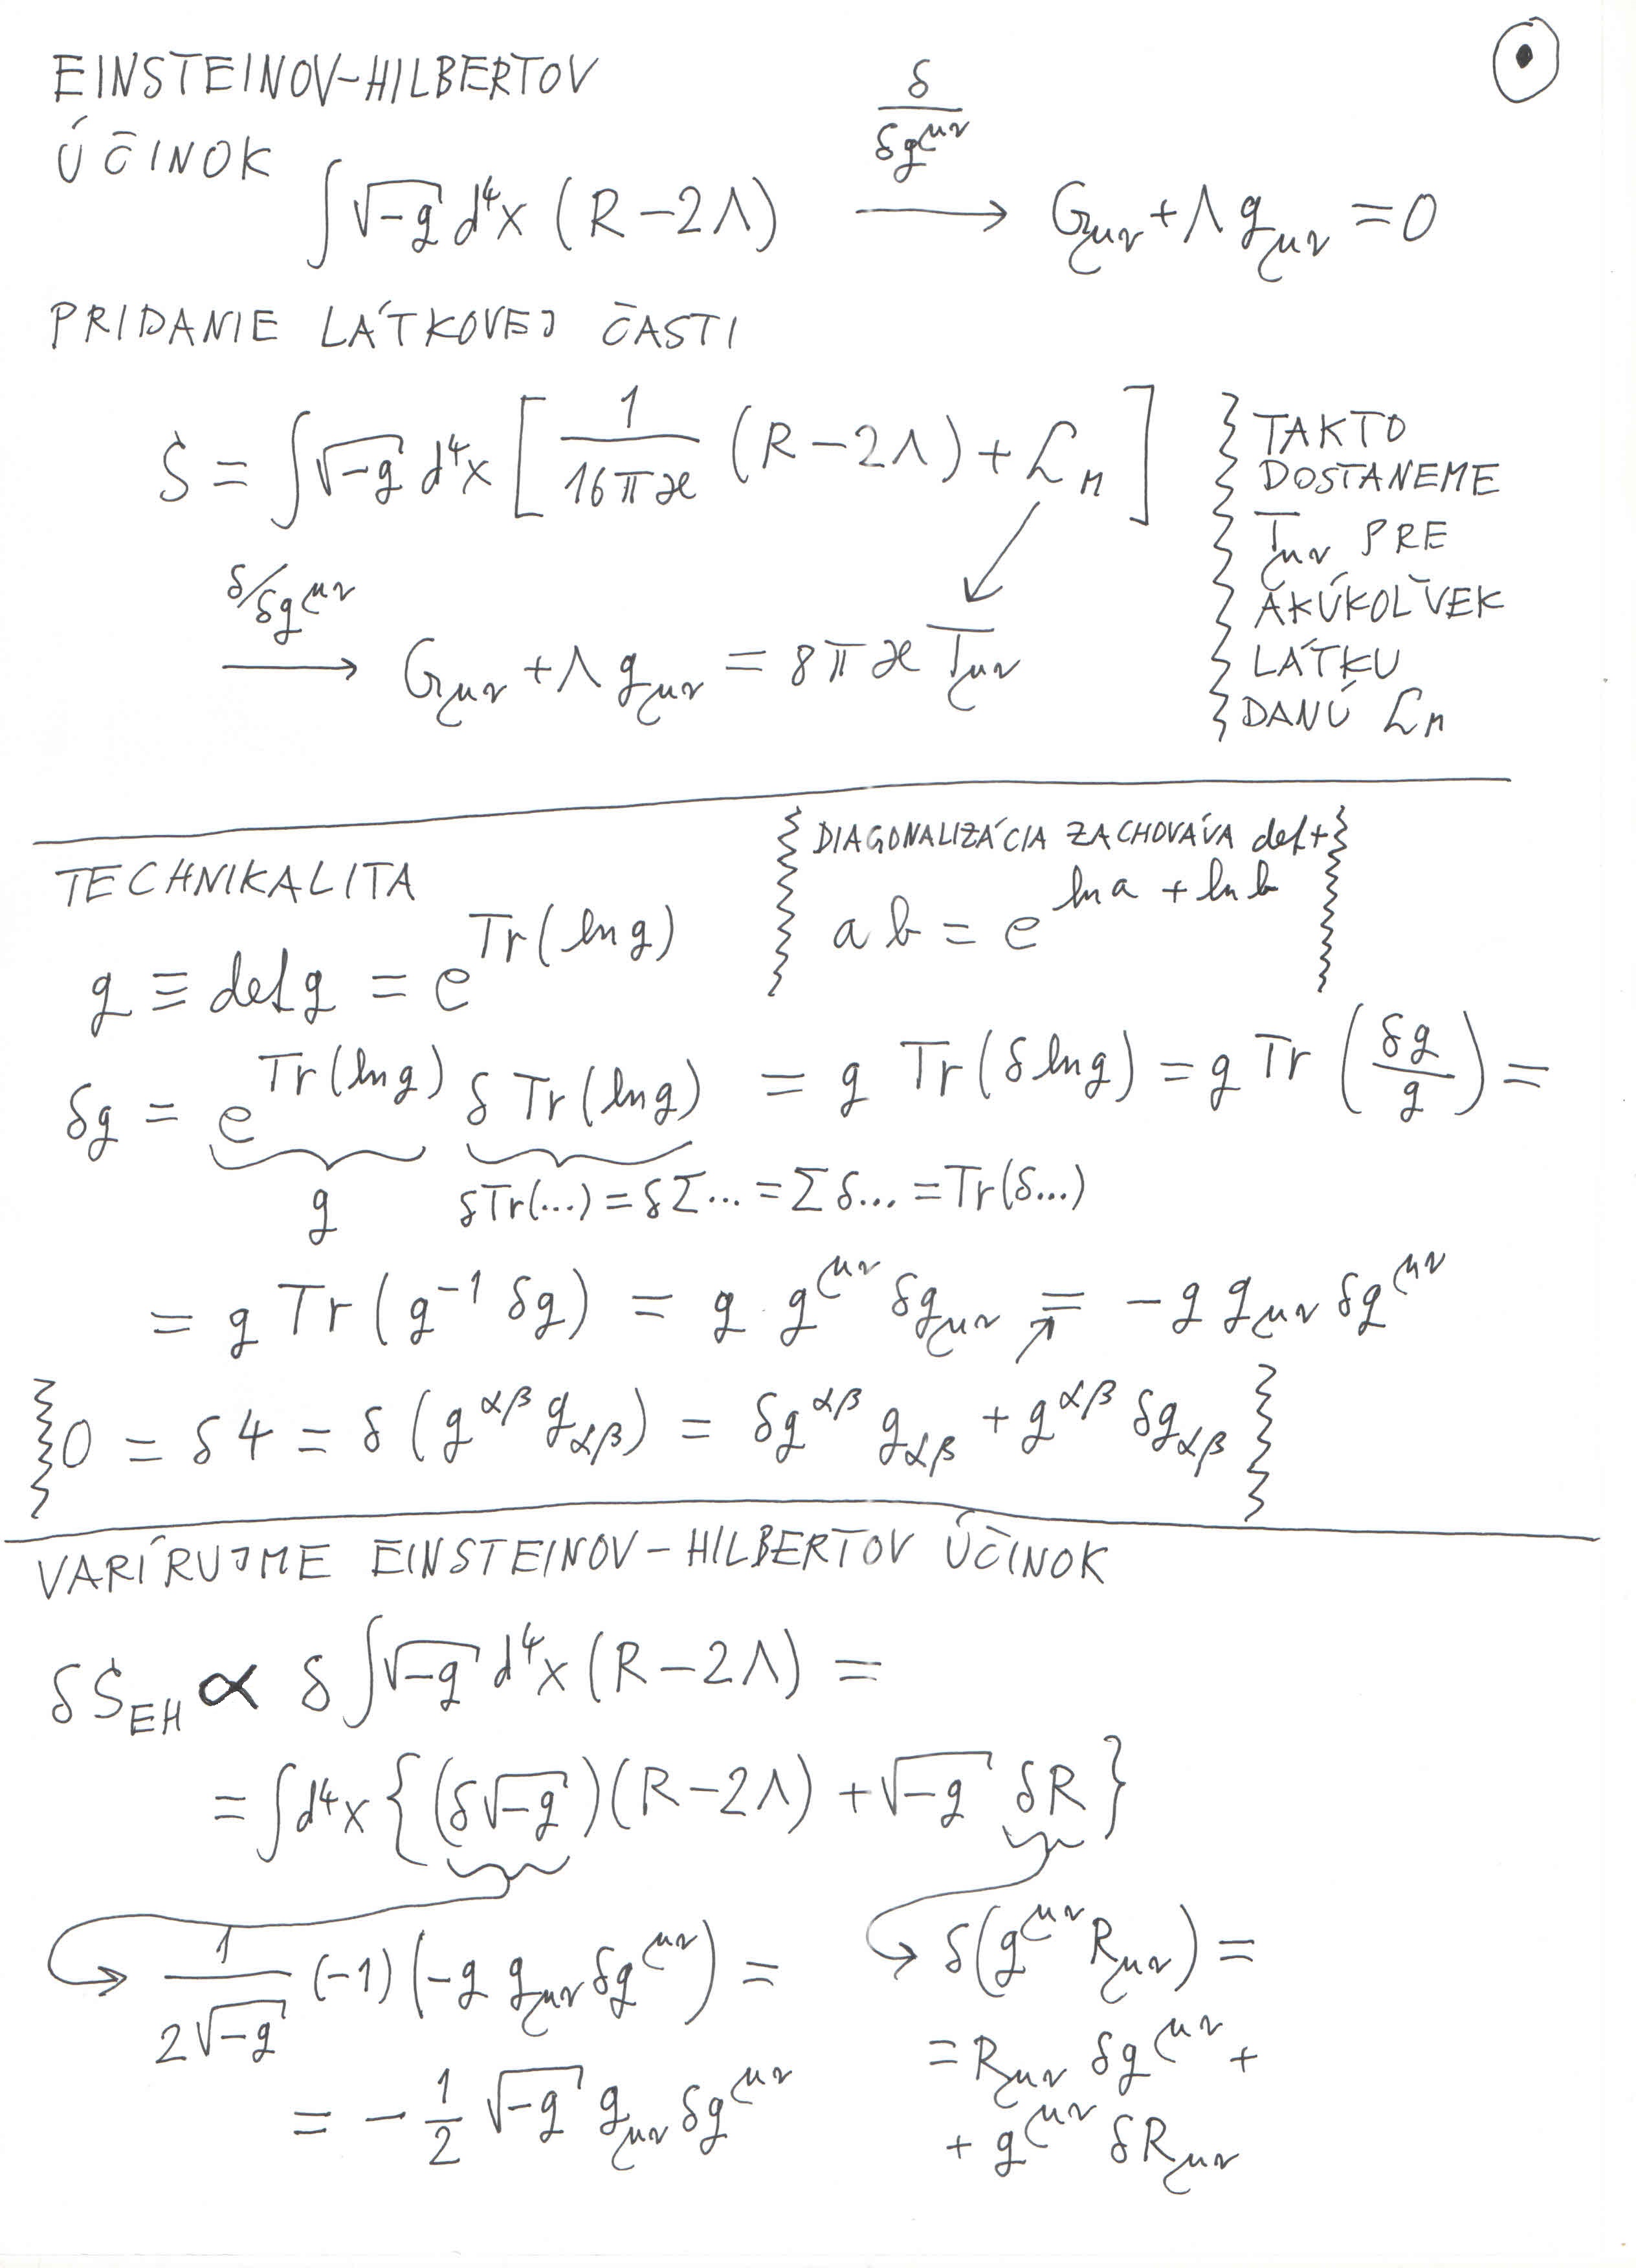 EINSTEINOV-HILBERTOV
ÚČINOK
∫√-g d⁴x (R-2Λ) —δ/δg^{μν}→ G_{μν}+Λ g_{μν} = 0
PRIDANIE LÁTKOVEJ ČASTI
S = ∫√-g d⁴x [ 1/(16πϰ) (R-2Λ) + ℒ_M ]
—δ/δg^{μν}→ G_{μν} + Λ g_{μν} = 8πϰ T_{μν}
TAKTO
DOSTANEME
T_{μν} PRE
AKÚKOĽVEK
LÁTKU
DANÚ ℒ_M
TECHNIKALITA
DIAGONALIZÁCIA ZACHOVÁVA det +
a b = e^{ln a + ln b}
g ≡ det g = e^{Tr(ln g)}
δg = e^{Tr(ln g)} δ Tr(ln g) = g Tr(δ ln g) = g Tr (δg/g) =
g
δTr(...) = δΣ... = Σδ... = Tr(δ...)
= g Tr(g^{-1} δg) = g g^{μν} δg_{μν} = -g g_{μν} δg^{μν}
0 = δ4 = δ(g^{αβ} g_{αβ}) = δg^{αβ} g_{αβ} + g^{αβ} δg_{αβ}
VARÍRUJME EINSTEINOV-HILBERTOV ÚČINOK
δS_{EH} ∝ δ∫√-g d⁴x (R-2Λ) =
= ∫d⁴x {(δ√-g)(R-2Λ) + √-g δR}
1/(2√-g) (-1)(-g g_{μν} δg^{μν}) =
= -1/2 √-g g_{μν} δg^{μν}
δ(g^{μν} R_{μν}) =
= R_{μν} δg^{μν} +
+ g^{μν} δR_{μν}